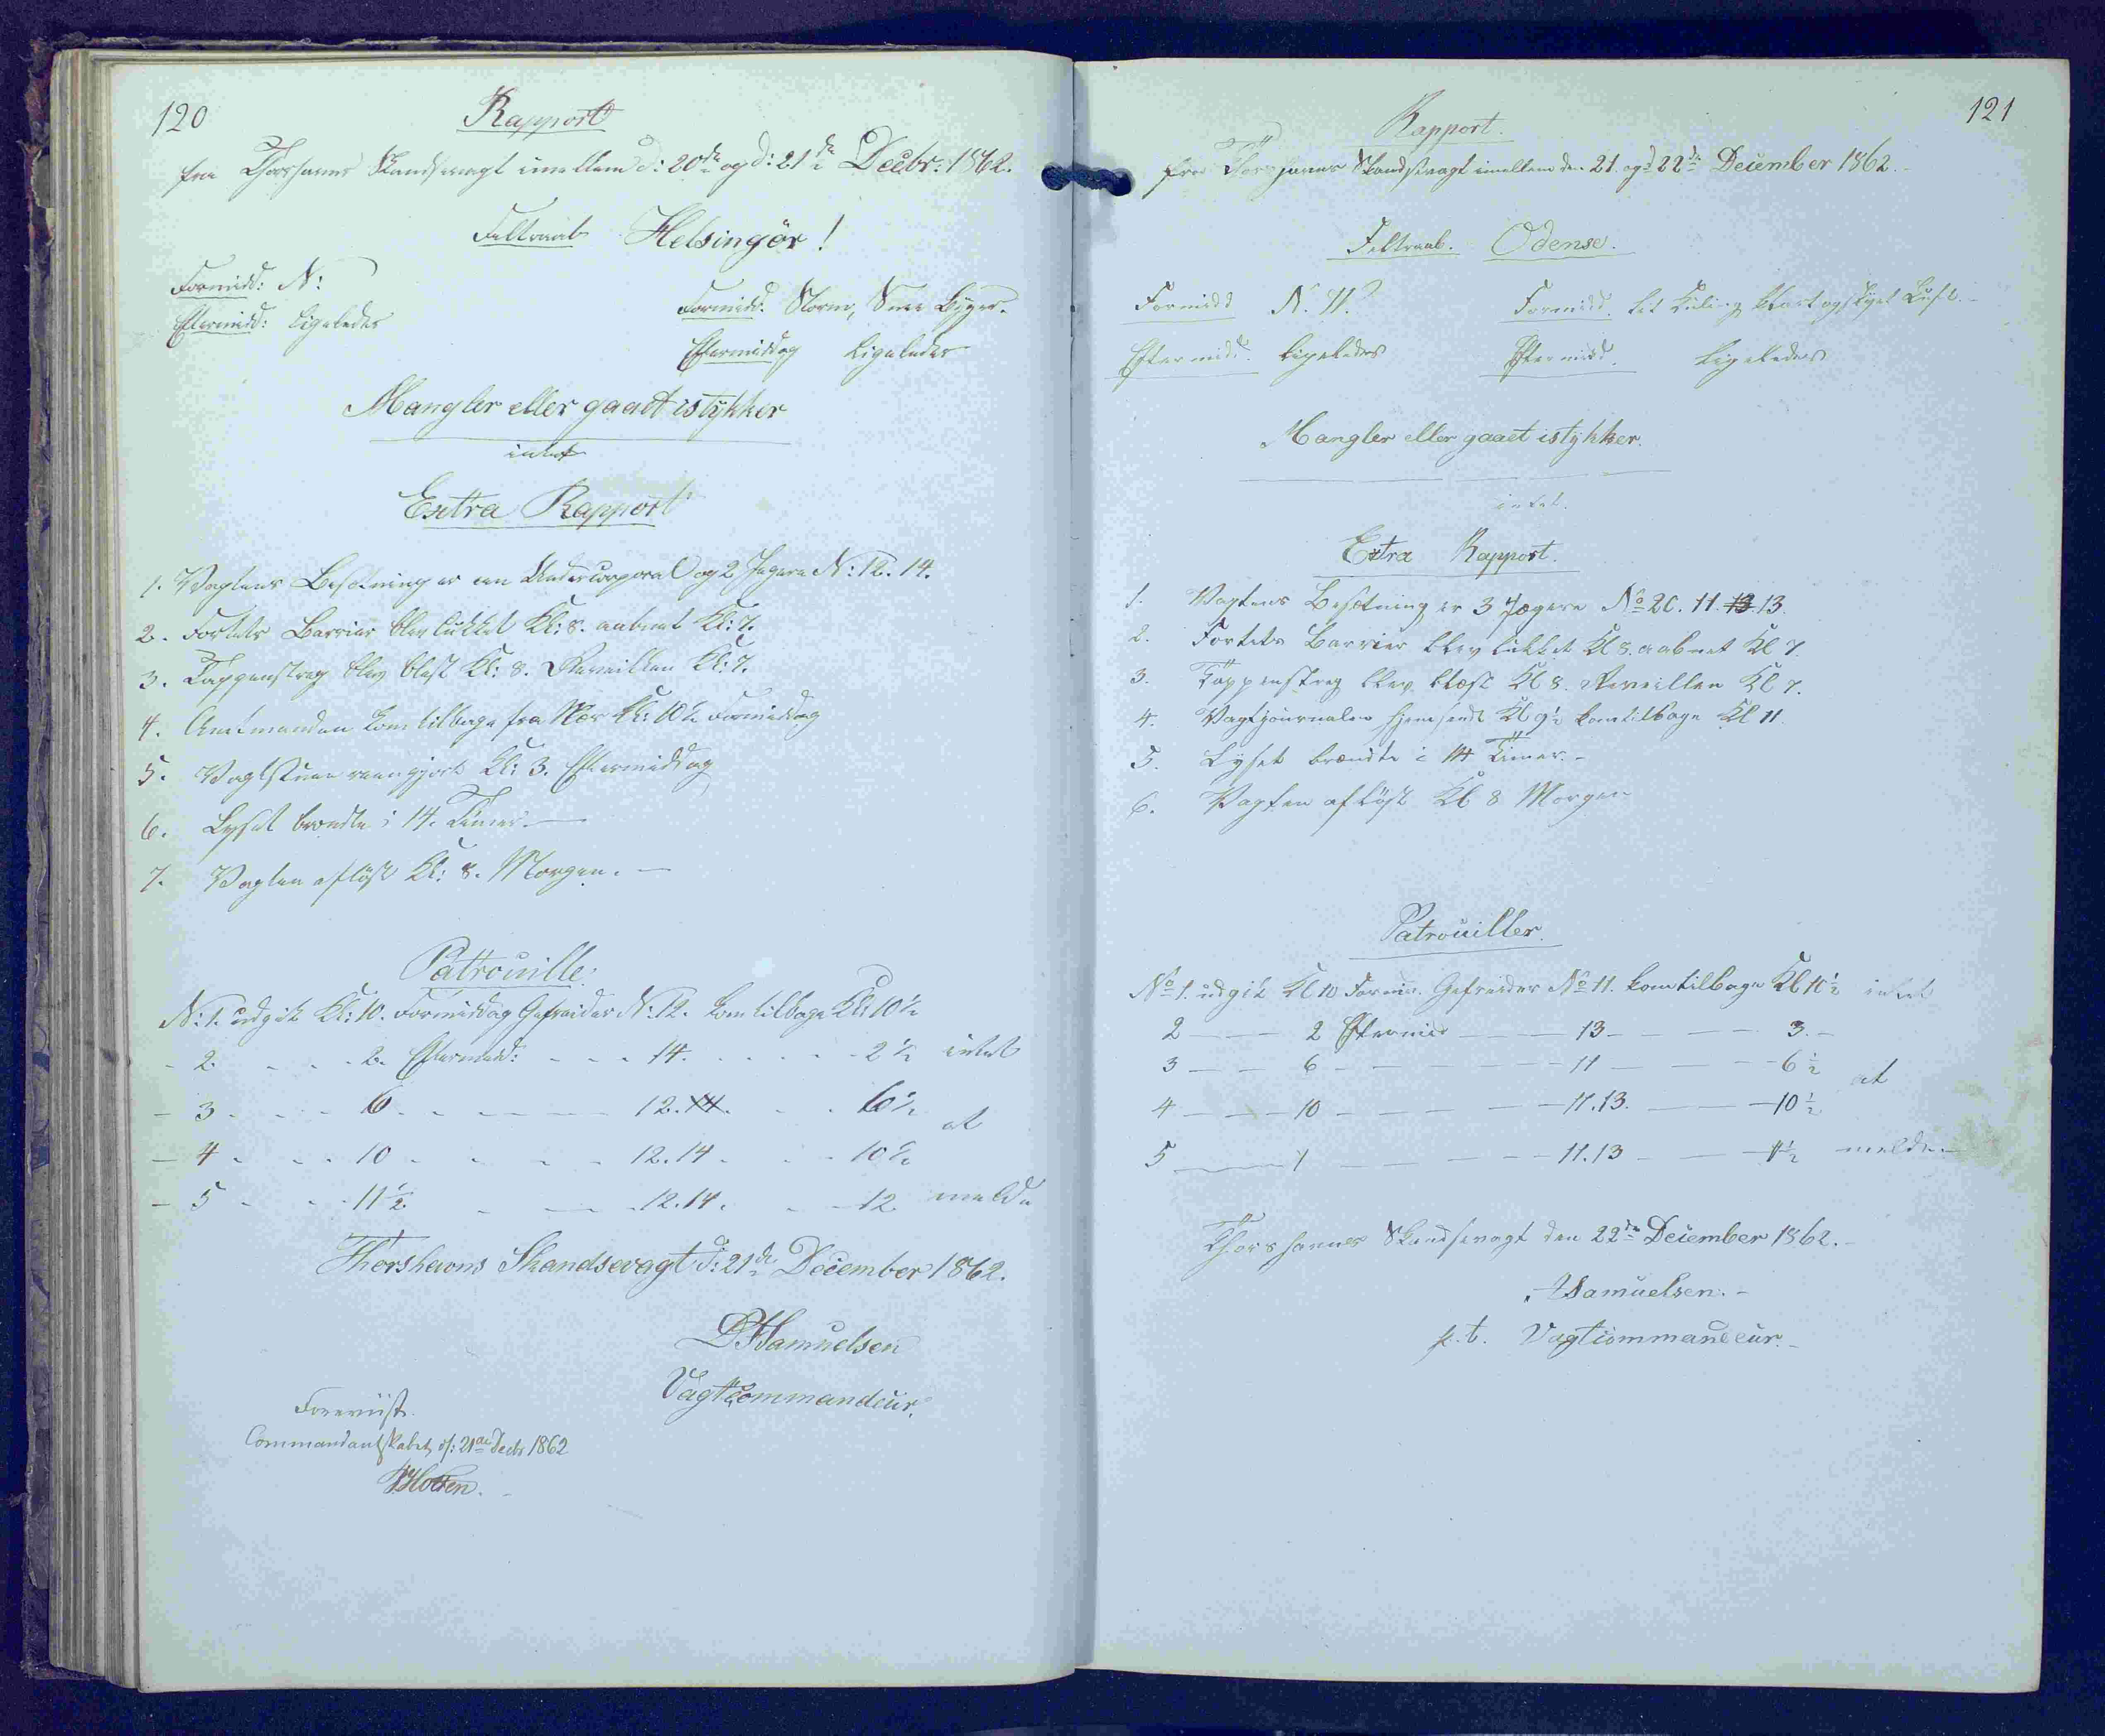 120
Rapport
fra Thorshavns Skandsevagt imellem d: 20de og d: 21de Decbr: 1862.
Feltraab Helsingör!
Formidd: N:
Eftermidd: Ligeledes
Formidd: Storm, Snee Byger.
Eftermiddag Ligeledes
Mangler eller gaaet istykker
intet
Extra Rapport
1. Vagtens Besætning er en Undercorporal og 2 Jægere N: 12. 14.
2. Fortets Barrier blev lukket Kl: 8. aabnet Kl: 7.
3. Tappenstreg blev blæst Kl: 8. Reveillen Kl: 7.
4. Amtmanden kom tilbage fra Kl: 10½ Formiddag
5. Vagtstuen reengjort Kl: 3. Eftermiddag
6. Lyset brændte i 14. Timer.
7. Vagten aflöst Kl: 8. Morgen. —
Patrouille:
N: 1. udgik Kl: 10. Formiddag Gefreider N: 12. kom tilbage Kl: 10½
- 2. - - - 2. Eftermidd: - - - 14. - - - - 2½ intet
- 3 - - - 6 - - - - 12. 14. - - - 6½ at
- 4 - - - 10 - - - - 12. 14 - - - 10½
- 5 - - - 11½ - - - 12. 14. - - - 12 melde
Thorshavns Skandsevagt d: 21de December 1862.
Samuelsen
Vagtcommandeur.
Foreviist
Commandantskabet d: 21de Decbr 1862
121
Rapport.
fra Thorshavns Skandsevagt imellem den 21 og d 22de December 1862.
Feltraab. Odense.
Formidd N. V.
Eftermidd. Ligeledes
Formidd. let Kuling klart og skyet Luft.
Eftermidd. Ligeledes
Mangler eller gaaet istykker.
intet.
Extra Rapport.
1. Vagtens Besætning er 3 Jægere No 20. 11. 13. 13.
2. Fortets Barrier blev lukket Kl 8. aabnet Kl 7.
3. Tappenstreg blev blæst Kl 8. Reveillen Kl 7.
4. Vagtjournalen hjemsendt Kl 9½ kom tilbage Kl 11.
5. Lyset brændte i 14 Timer. -
6. Vagten aflöst Kl 8 Morgen
Patrouiller.
No 1. udgik Kl 10 Formid. Gefreider No 11. kom tilbage Kl 10½ intet
2 — — 2 Eftermid — — 13 — — — 3. —
3 — — 6 — — — — 11 — — — 6½ at
4 — — 10 — — — — 11. 13. — — — 10½
5 — — 1 — — — — 11. 13 — — — 1½ melde. —
Thorshavns Skandsevagt den 22de December 1862. -
Samuelsen. -
p. t. Vagtcommandeur. -